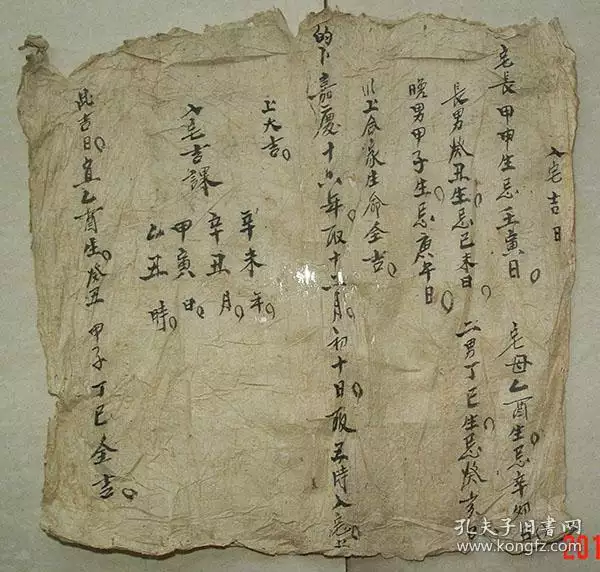 入宅吉日
宅長甲申生忌壬寅日。宅母乙酉生。忌辛卯日
長男癸丑生忌己未日。二男丁巳生忌癸亥
晚男甲子生。忌庚午日。
以上合家生命全吉。
的卜嘉慶十六年。取十二月。初十日。取丑時入宅。上
上大吉。
入宅吉課
辛未年。
辛丑月。
甲寅日。
乙丑時。
此吉日。宜乙酉生。癸丑甲子丁巳全吉。
孔夫子旧書网
www.kongfz.com
201